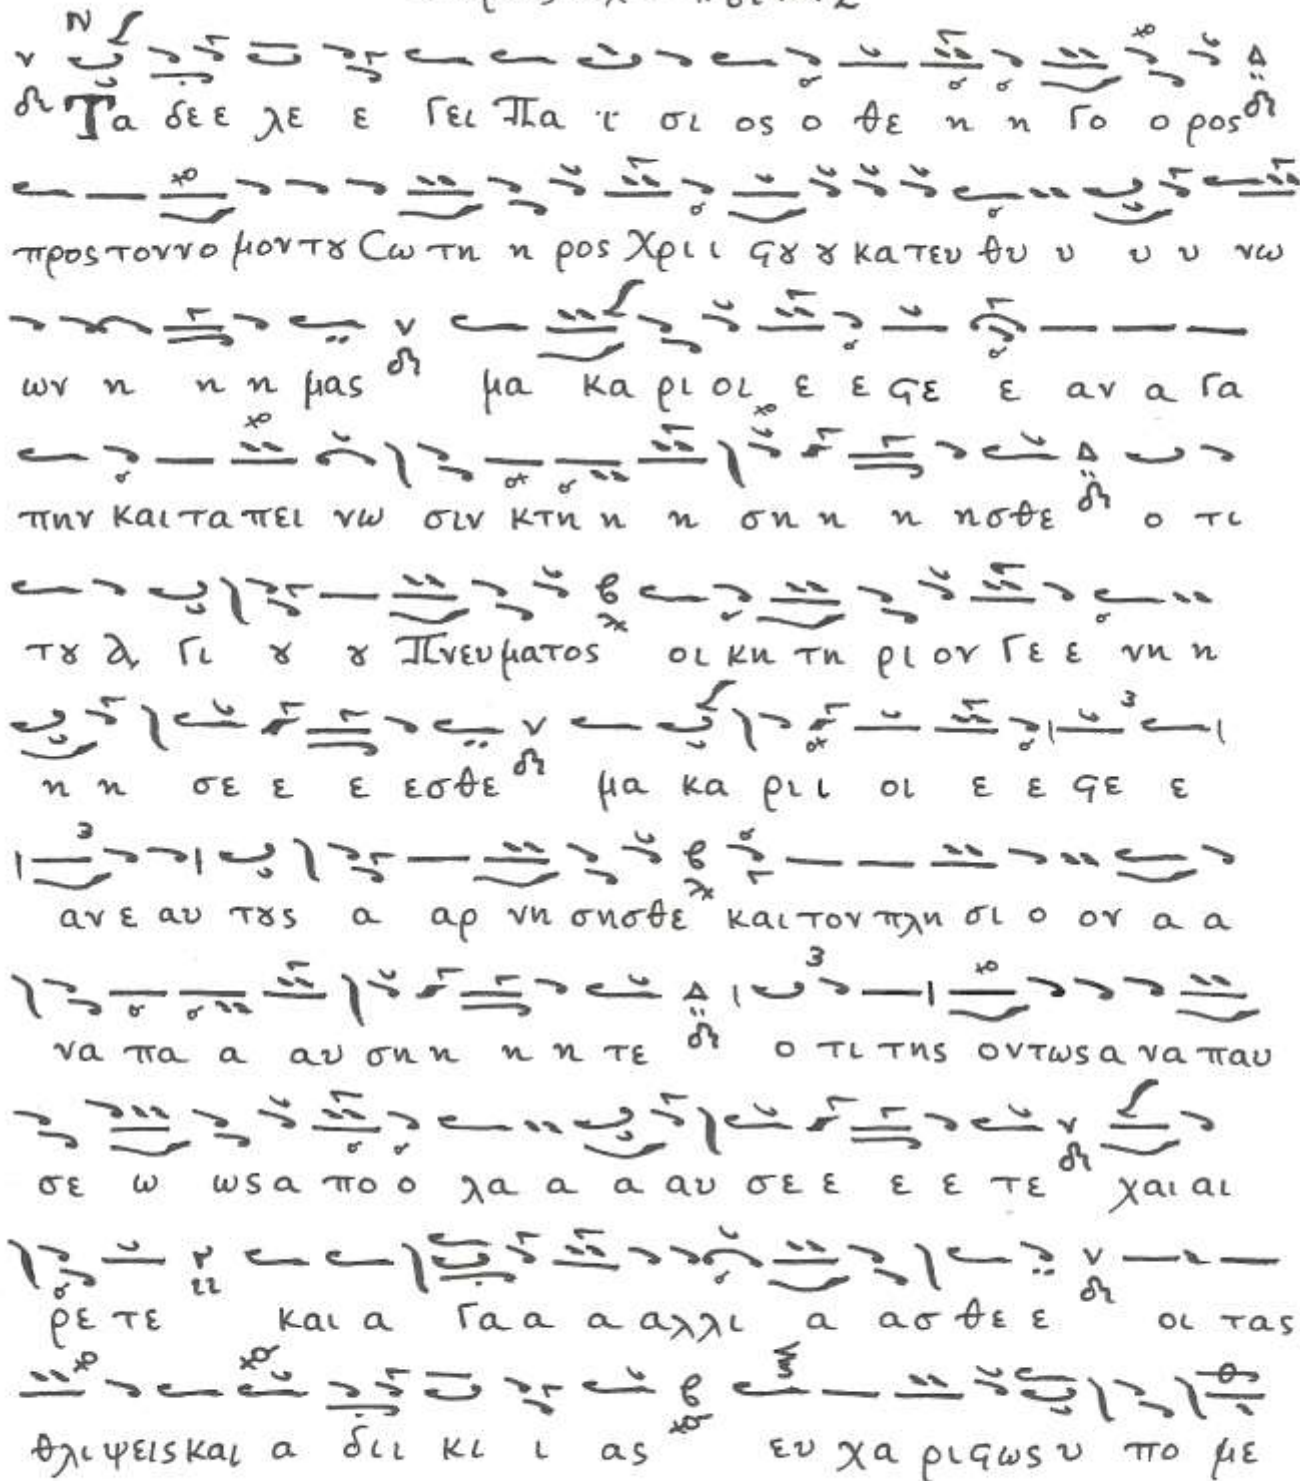 Τα δε ε λε ε γει Πα ι σι ος ο θε η η γο ο ρος
προς τον νο μον τȣ Σω τη η ρος Χρι ι ϛȣ ȣ κα τευ θυ υ υ υ νω
ων η η η μας μα κα ρι οι ε ε ϛε ε αν α γα
πην και τα πει νω σιν κτη η η ση η η ησθε ο τι
τȣ γι ȣ ȣ Πνευματος οι κη τη ρι ον γε ε νη η
η η σε ε ε εσθε μα κα ρι ι οι ε ε ϛε ε
αν ε αυ τȣς α αρ νη σησθε και τον πλη σι ο ον α α
να πα α αυ ση η η η τε ο τι της οντως α να παυ
σε ω ως α πο ο λα α α αυ σε ε ε ε τε χαι αι
ρε τε και α γα α α αλλι α ασ θε ε οι τας
θλιψεις και α δι ι κι ι ας ευ χα ρι ϛως υ πο με